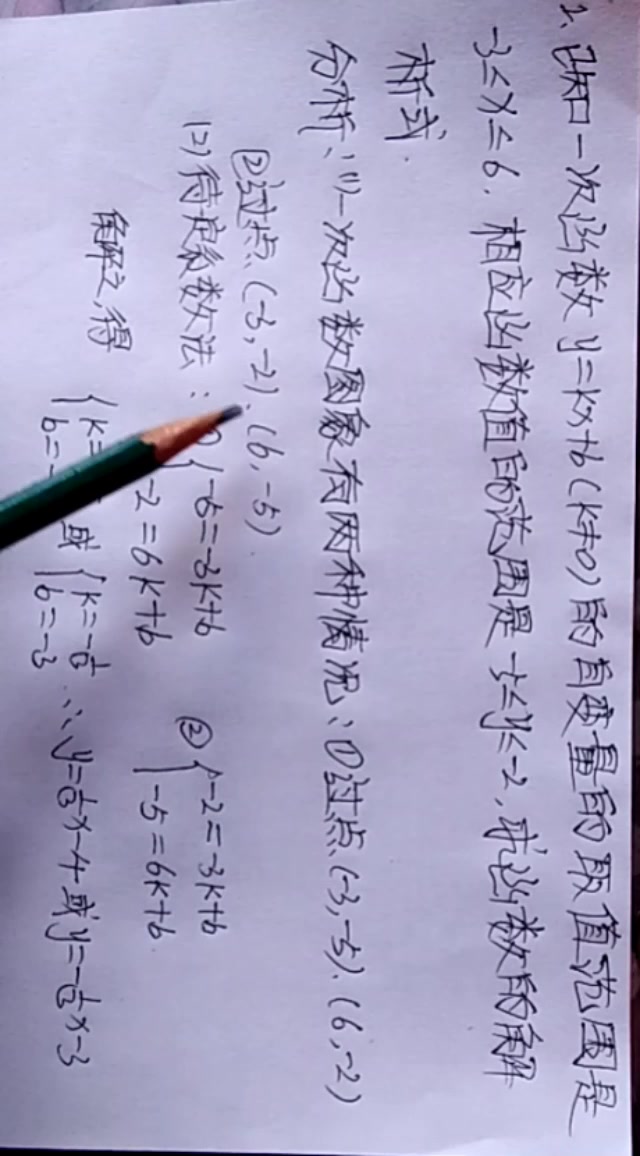 2、已知一次函数y=kx+b(k≠0)的自变量的取值范围是
-3≤x≤6,相应函数值的范围是-5≤y≤-2,求函数的解
析式.
分析:(1)一次函数图象有两种情况:①过点(-3,-5)、(6,-2)
②过点(-3,-2)、(6,-5)
(2)待定系数法: {-5=-3k+b ②{-2=-3k+b
-2=6k+b -5=6k+b
解之,得 {k= 或 {k=-1/3 ∴y=1/3x-4或y=-1/3x-3
b=- b=-3